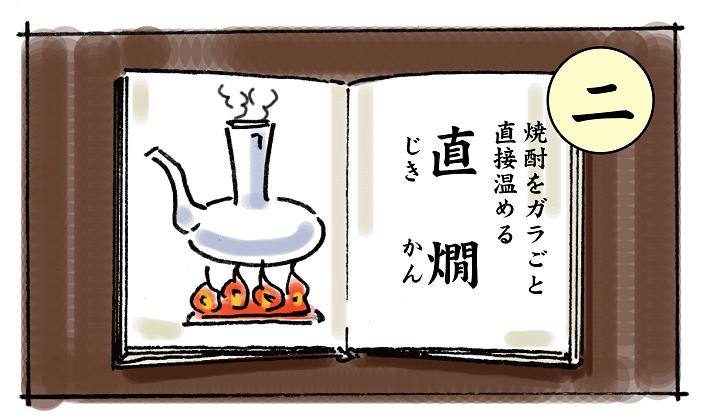 二
焼酎をガラごと
直接温める
直燗
じきかん